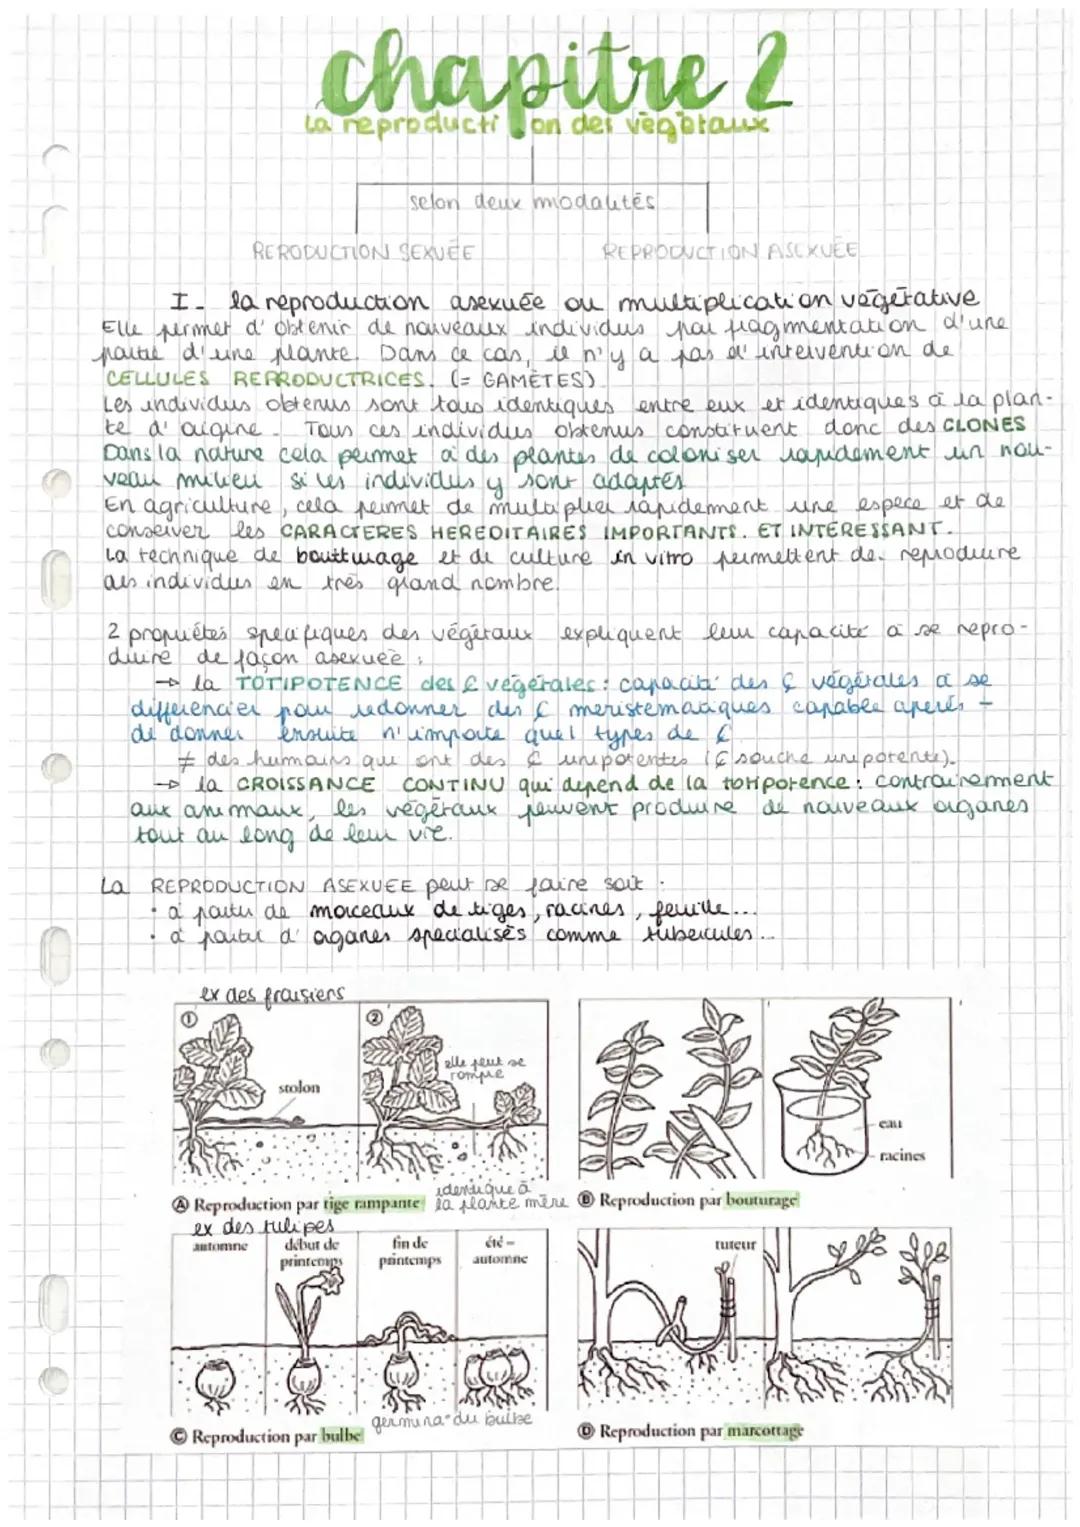 chapitre 2
la reproduction des végétaux
selon deux modalités
RERODUCTION SEXUÉE
REPRODUCTION ASEXUÉE
I- la reproduction asexuée ou multiplication végétative
Elle permet d'obtenir de nouveaux individus par fragmentation d'une
partie d'une plante. Dans ce cas, il n'y a pas d'intervention de
CELLULES REPRODUCTRICES. (= GAMÈTES)
Les individus obtenus sont tous identiques entre eux et identiques à la plan-
te d'origine. Tous ces individus obtenus constituent donc des CLONES
Dans la nature cela permet à des plantes de coloniser rapidement un nou-
veau milieu si les individus y sont adaptés
En agriculture, cela permet de multiplier rapidement une espèce et de
conserver les CARACTERES HEREDITAIRES IMPORTANTS. ET INTERESSANT.
La technique de bouturage et de culture in vitro permettent de reproduire
des individus en très grand nombre.
2 propriétés spécifiques des végétaux expliquent leur capacité à se repro-
duire de façon asexuée :
→ la TOTIPOTENCE des C végétales : capacité des C végétales à se
différencier pour redonner des C méristématiques capable après -
de donner ensuite n'importe quel types de C
≠ des humains qui ont des C unipotentes (C souche unipotente).
→ la CROISSANCE CONTINU qui dépend de la totipotence : contrairement
aux animaux, les végétaux peuvent produire de nouveaux organes
tout au long de leur vie.
La REPRODUCTION ASEXUEE peut se faire soit :
· à partir de morceaux de tiges, racines, feuille...
· à partir d'organes spécialisés comme tubercules..
ex des fraisiers
① ②
elle peut se
rompre
stolon
eau
racines
identique à
Ⓐ Reproduction par tige rampante la plante mère Ⓑ Reproduction par bouturage
ex des tulipes
automne début de printemps fin de printemps été - automne
tuteur
germina° du bulbe
Ⓒ Reproduction par bulbe
Ⓓ Reproduction par marcottage